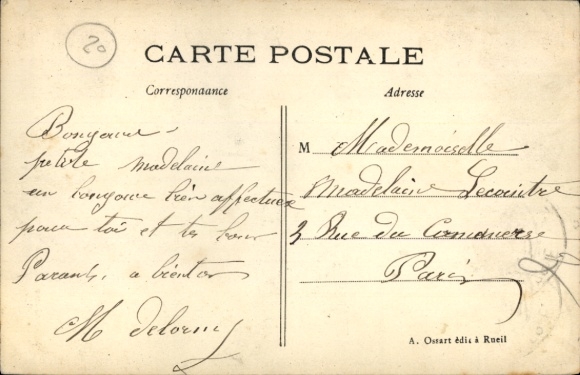 20
CARTE POSTALE
Correspondance
Adresse
Bonjour
petite Madelaine
un bonjour bien affectueux
pour toi et tes bons
Parants, a bientot
M Delorny
M Mademoiselle
Madelaine Lecointre
3 Rue du Commerse
Paris
A. Ossart édit à Rueil